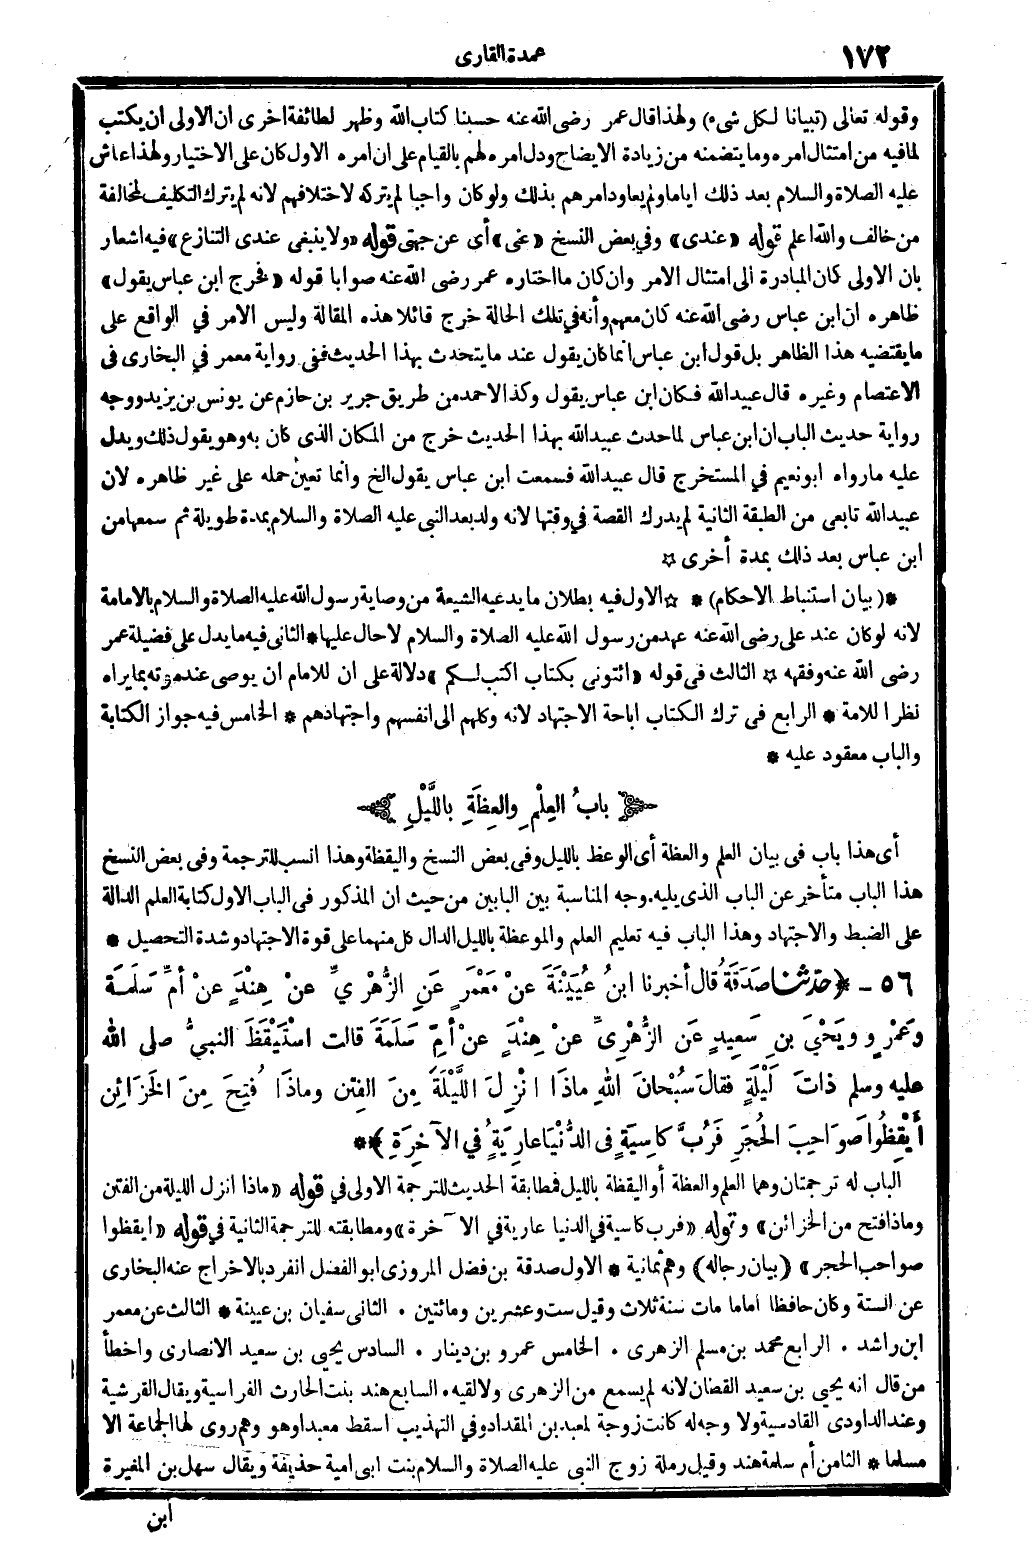 ١٧٢
عمدة القارى
وقوله تعالى (تبيانا لكل شىء) ولهذا قال عمر رضى الله عنه حسبنا كتاب الله وظهر لطائفة اخرى ان الاولى ان يكتب
لما فيه من امتثال امره وما يتضمنه من زيادة الايضاح ودل امره لهم بالقيام على ان امره الاول كان على الاختيار ولهذا عاش
عليه الصلاة والسلام بعد ذلك اياما ولم يعاود امرهم بذلك ولو كان واجبا لم يتركه لاختلافهم لانه لم يترك التكليف لمخالفة
من خالف والله اعلم قوله «عندى» وفي بعض النسخ «عنى» أى عن جهتى قوله «ولا ينبغى عندى التنازع» فيه اشعار
بان الاولى كان المبادرة الى امتثال الامر وان كان ما اختاره عمر رضى الله عنه صوابا قوله «فخرج ابن عباس يقول»
ظاهره ان ابن عباس رضى الله عنه كان معهم وأنه في تلك الحالة خرج قائلا هذه المقالة وليس الامر في الواقع على
ما يقتضيه هذا الظاهر بل قول ابن عباس انما كان يقول عند ما يتحدث بهذا الحديث ففى رواية معمر في البخارى فى
الاعتصام وغيره قال عبيد الله فكان ابن عباس يقول وكذا لاحمد من طريق جرير بن حازم عن يونس بن يزيد ووجه
رواية حديث الباب ان ابن عباس لما حدث عبيد الله بهذا الحديث خرج من المكان الذى كان به وهو يقول ذلك ويدل
عليه ما رواه ابو نعيم في المستخرج قال عبيد الله فسمعت ابن عباس يقول الخ وانما تعين حمله على غير ظاهره لان
عبيد الله تابعى من الطبقة الثانية لم يدرك القصة في وقتها لانه ولد بعد النبى عليه الصلاة والسلام بمدة طويلة ثم سمعها من
ابن عباس بعد ذلك بمدة أخرى ☆
*(بيان استنباط الاحكام) * ☆ الاول فيه بطلان ما يدعيه الشيعة من وصاية رسول الله عليه الصلاة والسلام بالامامة
لانه لو كان عند على رضى الله عنه عهد من رسول الله عليه الصلاة والسلام لاحال عليها * الثانى فيه ما يدل على فضيلة عمر
رضى الله عنه وفقهه ☆ الثالث فى قوله «ائتونى بكتاب اكتب لكم» دلالة على ان للامام ان يوصى عند موته بما يراه
نظرا للامة * الرابع فى ترك الكتاب اباحة الاجتهاد لانه وكلهم الى انفسهم واجتهادهم * الخامس فيه جواز الكتابة
والباب معقود عليه *
باب العِلْمِ والعِظَةِ باللَّيْلِ
أى هذا باب فى بيان العلم والعظة أى الوعظ بالليل وفى بعض النسخ واليقظة وهذا انسب للترجمة وفى بعض النسخ
هذا الباب متأخر عن الباب الذى يليه. وجه المناسبة بين البابين من حيث ان المذكور فى الباب الاول كتابة العلم الدالة
على الضبط والاجتهاد وهذا الباب فيه تعليم العلم والموعظة بالليل الدال كل منهما على قوة الاجتهاد وشدة التحصيل *
٥٦ - ﴿حَدَّثَنَا صَدَقَةُ قال أخبرنا ابنُ عُيَيْنَةَ عنْ مَعْمَرٍ عَنِ الزُّهْرِيِّ عنْ هِنْدٍ عنْ أُمِّ سَلَمَةَ
وعَمْرٍو ويَحْيَى بنِ سَعِيدٍ عَنِ الزُّهْرِىِّ عنْ هِنْدٍ عنْ أُمِّ سَلَمَةَ قالت اسْتَيْقَظَ النبيُّ صلى الله
عليه وسلم ذاتَ لَيْلَةٍ فقالَ سُبْحَانَ اللهِ ماذَا انْزِلَ اللَّيْلَةَ مِنَ الفِتَنِ وماذَا فُتِحَ مِنَ الخَزَائِنِ
أَيْقِظُوا صَوَاحِبَ الحُجَرِ فَرُبَّ كاسِيَةٍ فى الدُّنْيَا عارِيَةٌ فِي الآخِرَةِ﴾ **
الباب له ترجمتان وهما العلم والعظة أو اليقظة بالليل فمطابقة الحديث للترجمة الاولى في قوله «ماذا انزل الليلة من الفتن
وماذا فتح من الخزائن» وقوله «فرب كاسية في الدنيا عارية في الآخرة» ومطابقته للترجمة الثانية في قوله «ايقظوا
صواحب الحجر» (بيان رجاله) وهم ثمانية * الاول صدقة بن فضل المروزى ابو الفضل انفرد بالاخراج عنه البخارى
عن الستة وكان حافظا اماما مات سنة ثلاث وقيل ست وعشرين ومائتين . الثانى سفيان بن عيينة * الثالث عن معمر
ابن راشد . الرابع محمد بن مسلم الزهرى . الخامس عمرو بن دينار . السادس يحيى بن سعيد الانصارى واخطأ
من قال انه يحيى بن سعيد القصان لانه لم يسمع من الزهرى ولا لقيه. السابع هند بنت الحارث الفراسية ويقال القرشية
وعند الداودى القادسية ولا وجه له كانت زوجة لمعبد بن المقداد وفي التهذيب اسقط معبدا وهو وهم روى لها الجماعة الا
مسلما * الثامن أم سلمة هند وقيل رملة زوج النبى عليه الصلاة والسلام بنت ابى امية حذيفة ويقال سهل بن المغيرة
ابن